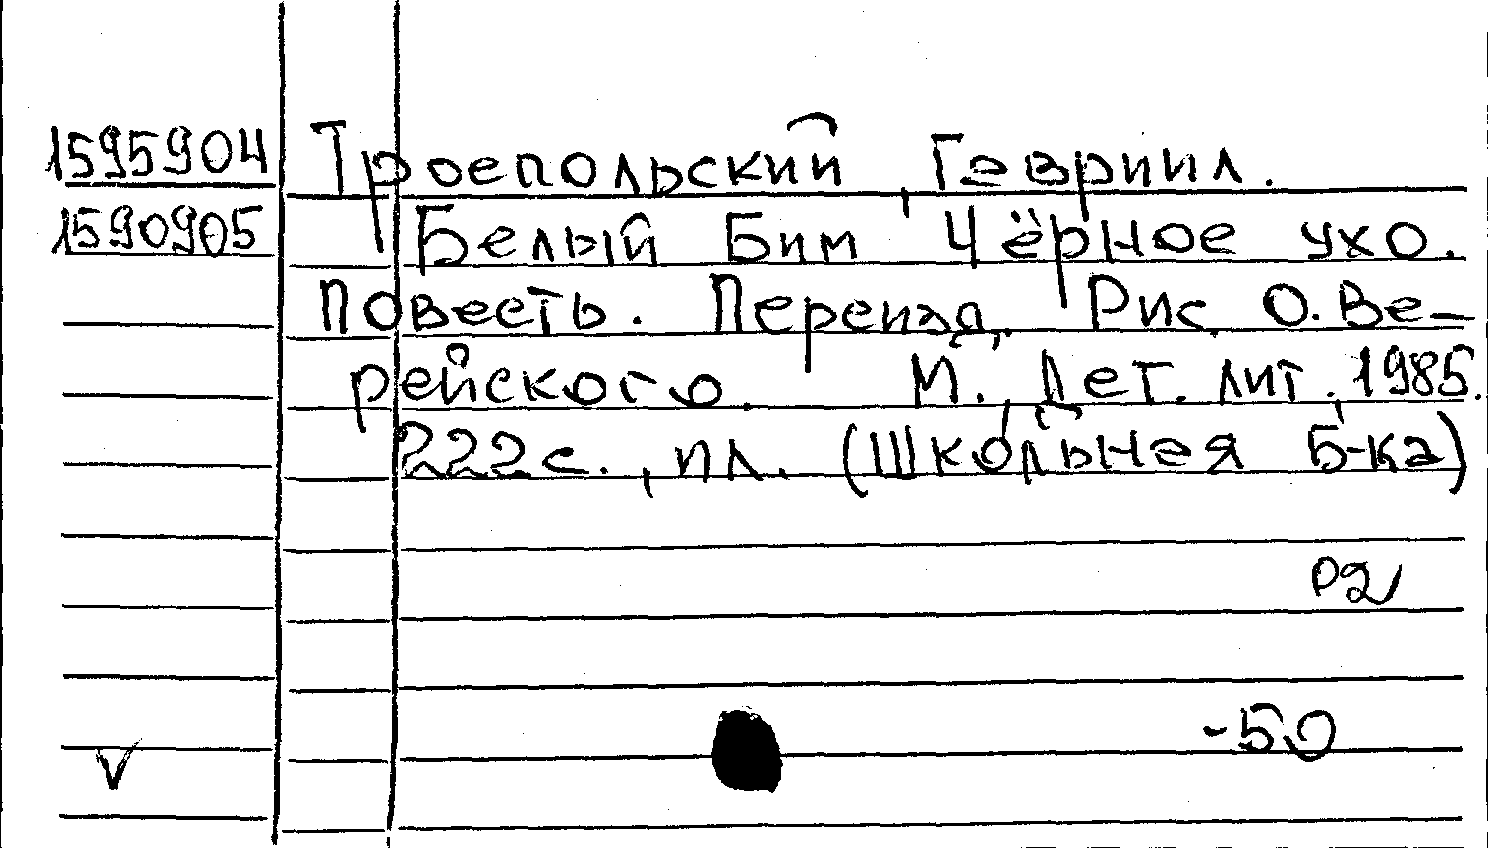 1595904 Троепольский, Гавриил.
1590905 Белый Бим Чёрное ухо.
Повесть. Переизд. Рис. О. Ве-
рейского. М., Дет. лит., 1985.
222 с., ил. (Школьная б-ка)
Р2
-50